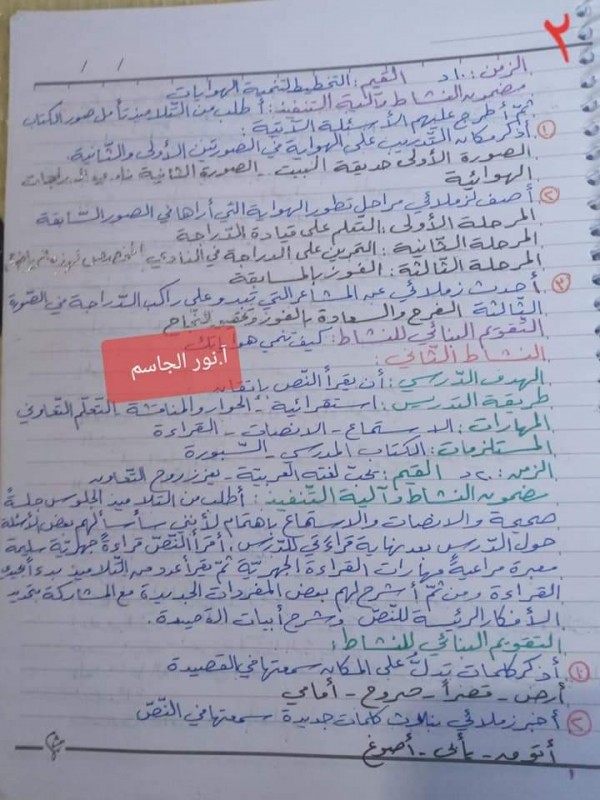 ٢
/ /
الزمن: ١٠ د القيم: التخطيط لتنمية الهوايات
مضمون النشاط وآلية التنفيذ: أطلب من التلاميذ تأمل صور الكتاب
ثمّ أطرح عليهم الأسئلة الآتية:
① أذكر مكان التدريب على الهواية في الصورتين الأولى والثانية.
الصورة الأولى حديقة البيت - الصورة الثانية نادي الدراجات
الهوائية
② أصف لزملائي مراحل تطور الهواية التي أراها في الصور السابقة
المرحلة الأولى: التعلم على قيادة الدراجة
المرحلة الثانية: التمرين على الدراجة في النادي
المرحلة الثالثة: الفوز بالمسابقة
③ أحدث زملائي عن المشاعر التي تبدو على راكب الدراجة في الصورة
الثالثة الفرح والسعادة بالفوز وتحقيق النجاح
التقويم البنائي للنشاط: كيف تنمي هواياتك
أ.نور الجاسم
النشاط الثاني:
الهدف الدرسي: أن يقرأ النص بإتقان
طريقة التدريس: استقرائية - الحوار والمناقشة - التعلم التعاوني
المهارات: الاستماع - الانصات - القراءة
المستلزمات: الكتاب المدرسي - السبورة
الزمن: ٢٠ د القيم: يحب لغته العربية - يعزز روح التعاون
مضمون النشاط وآلية التنفيذ: أطلب من التلاميذ الجلوس جلسةً
صحيحة والانصات والاستماع باهتمام لأنني سأسألهم بعض الأسئلة
حول الدرس بعد نهاية قراءتي للدرس. أقرأ النص قراءةً جهريّة سليمة
معبرة مراعيةً مهارات القراءة الجهرية ثمّ يقرأ عدد من التلاميذ
القراءة ومن ثمّ أشرح لهم بعض المفردات الجديدة مع المشاركة بتحديد
الأفكار الرئيسة للنصّ وشرح أبيات القصيدة.
التقويم البنائي للنشاط:
① أذكر كلمات تدلّ على المكان سمعتها في القصيدة
أرض - قصراً - صروح - أمامي
② أخبر زملائي بثلاث كلمات جديدة سمعتها في النصّ
أتوق - يأبى - أصوغ